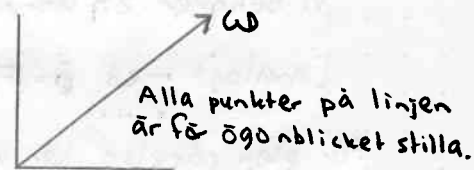 ω
Alla punkter på linjen
är för ögonblicket stilla.